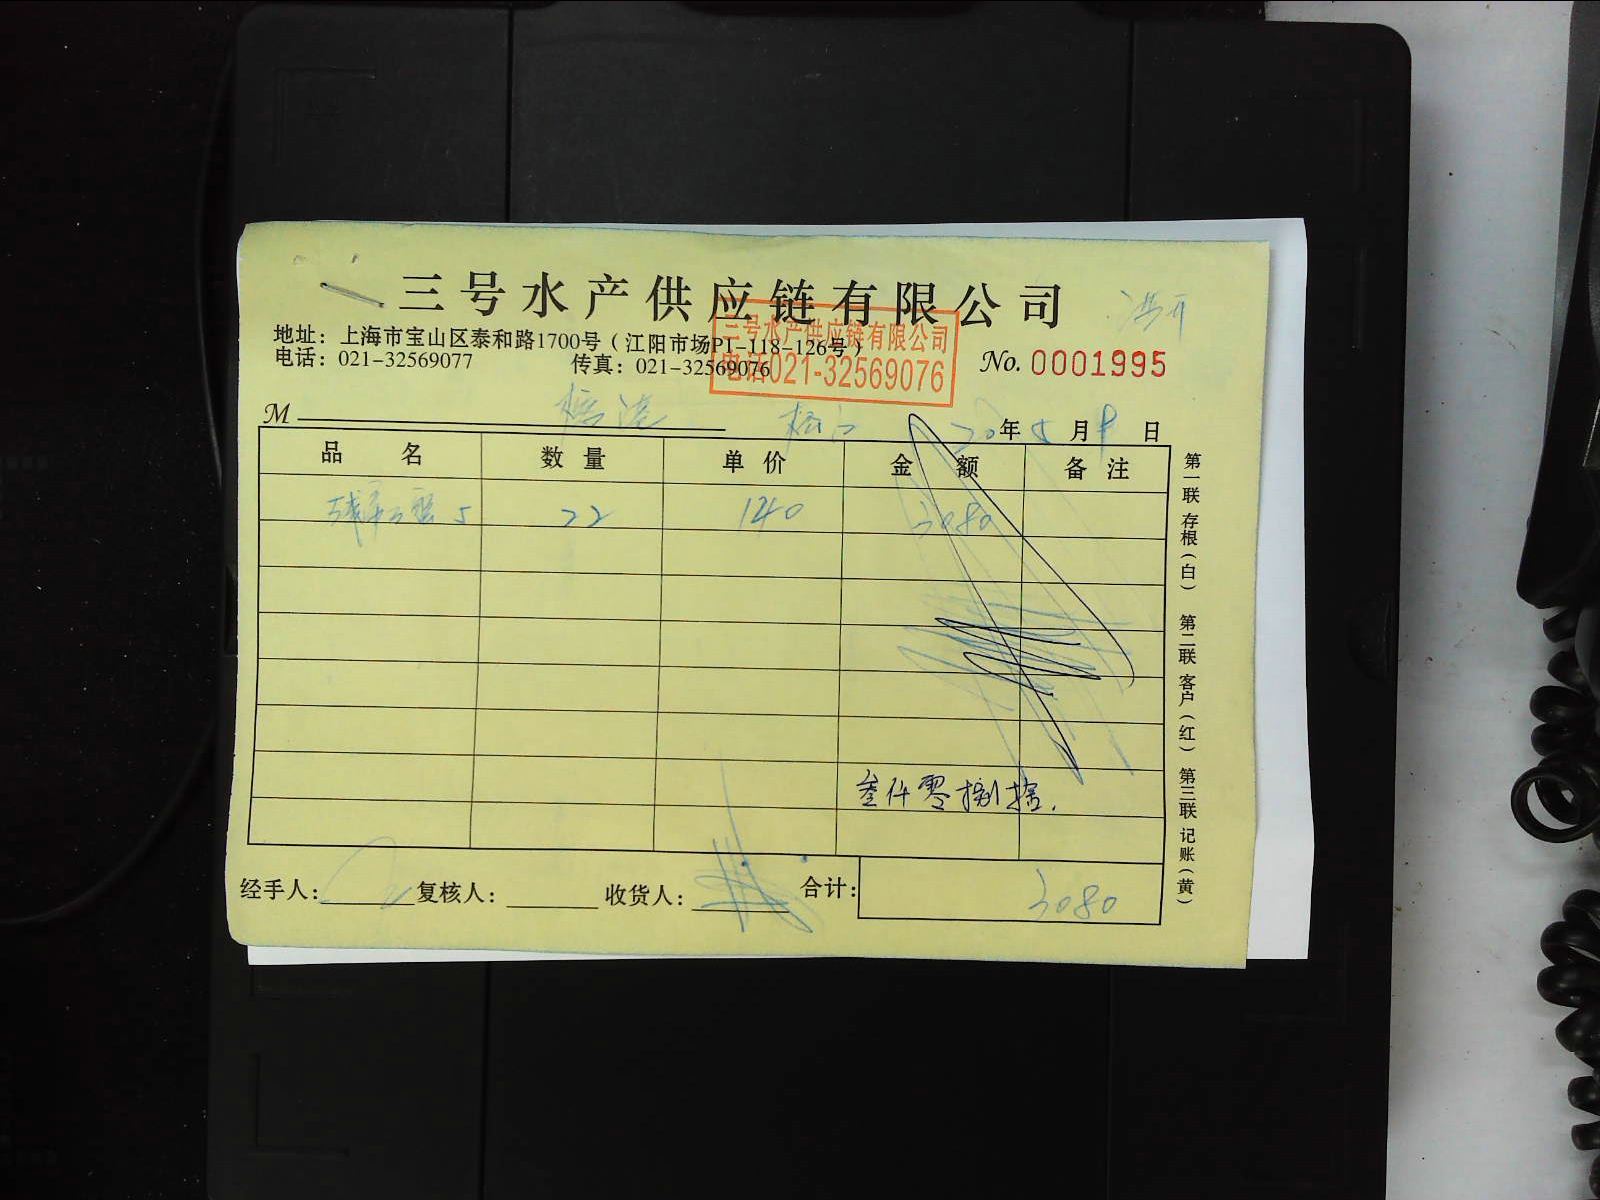 三号水产供应链有限公司
地址：上海市宝山区泰和路1700号（江阳市场P1-118-126号）
电话：021-32569077 传真：021-32569076
三号水产供应链有限公司
电话021-32569076
No. 0001995
M 松江 20年5月 日
品名 数量 单价 金额 备注
22 140 3080
叁仟零捌拾.
经手人： 复核人： 收货人： 合计： 3080
第一联 存根（白） 第二联 客户（红） 第三联 记账（黄）